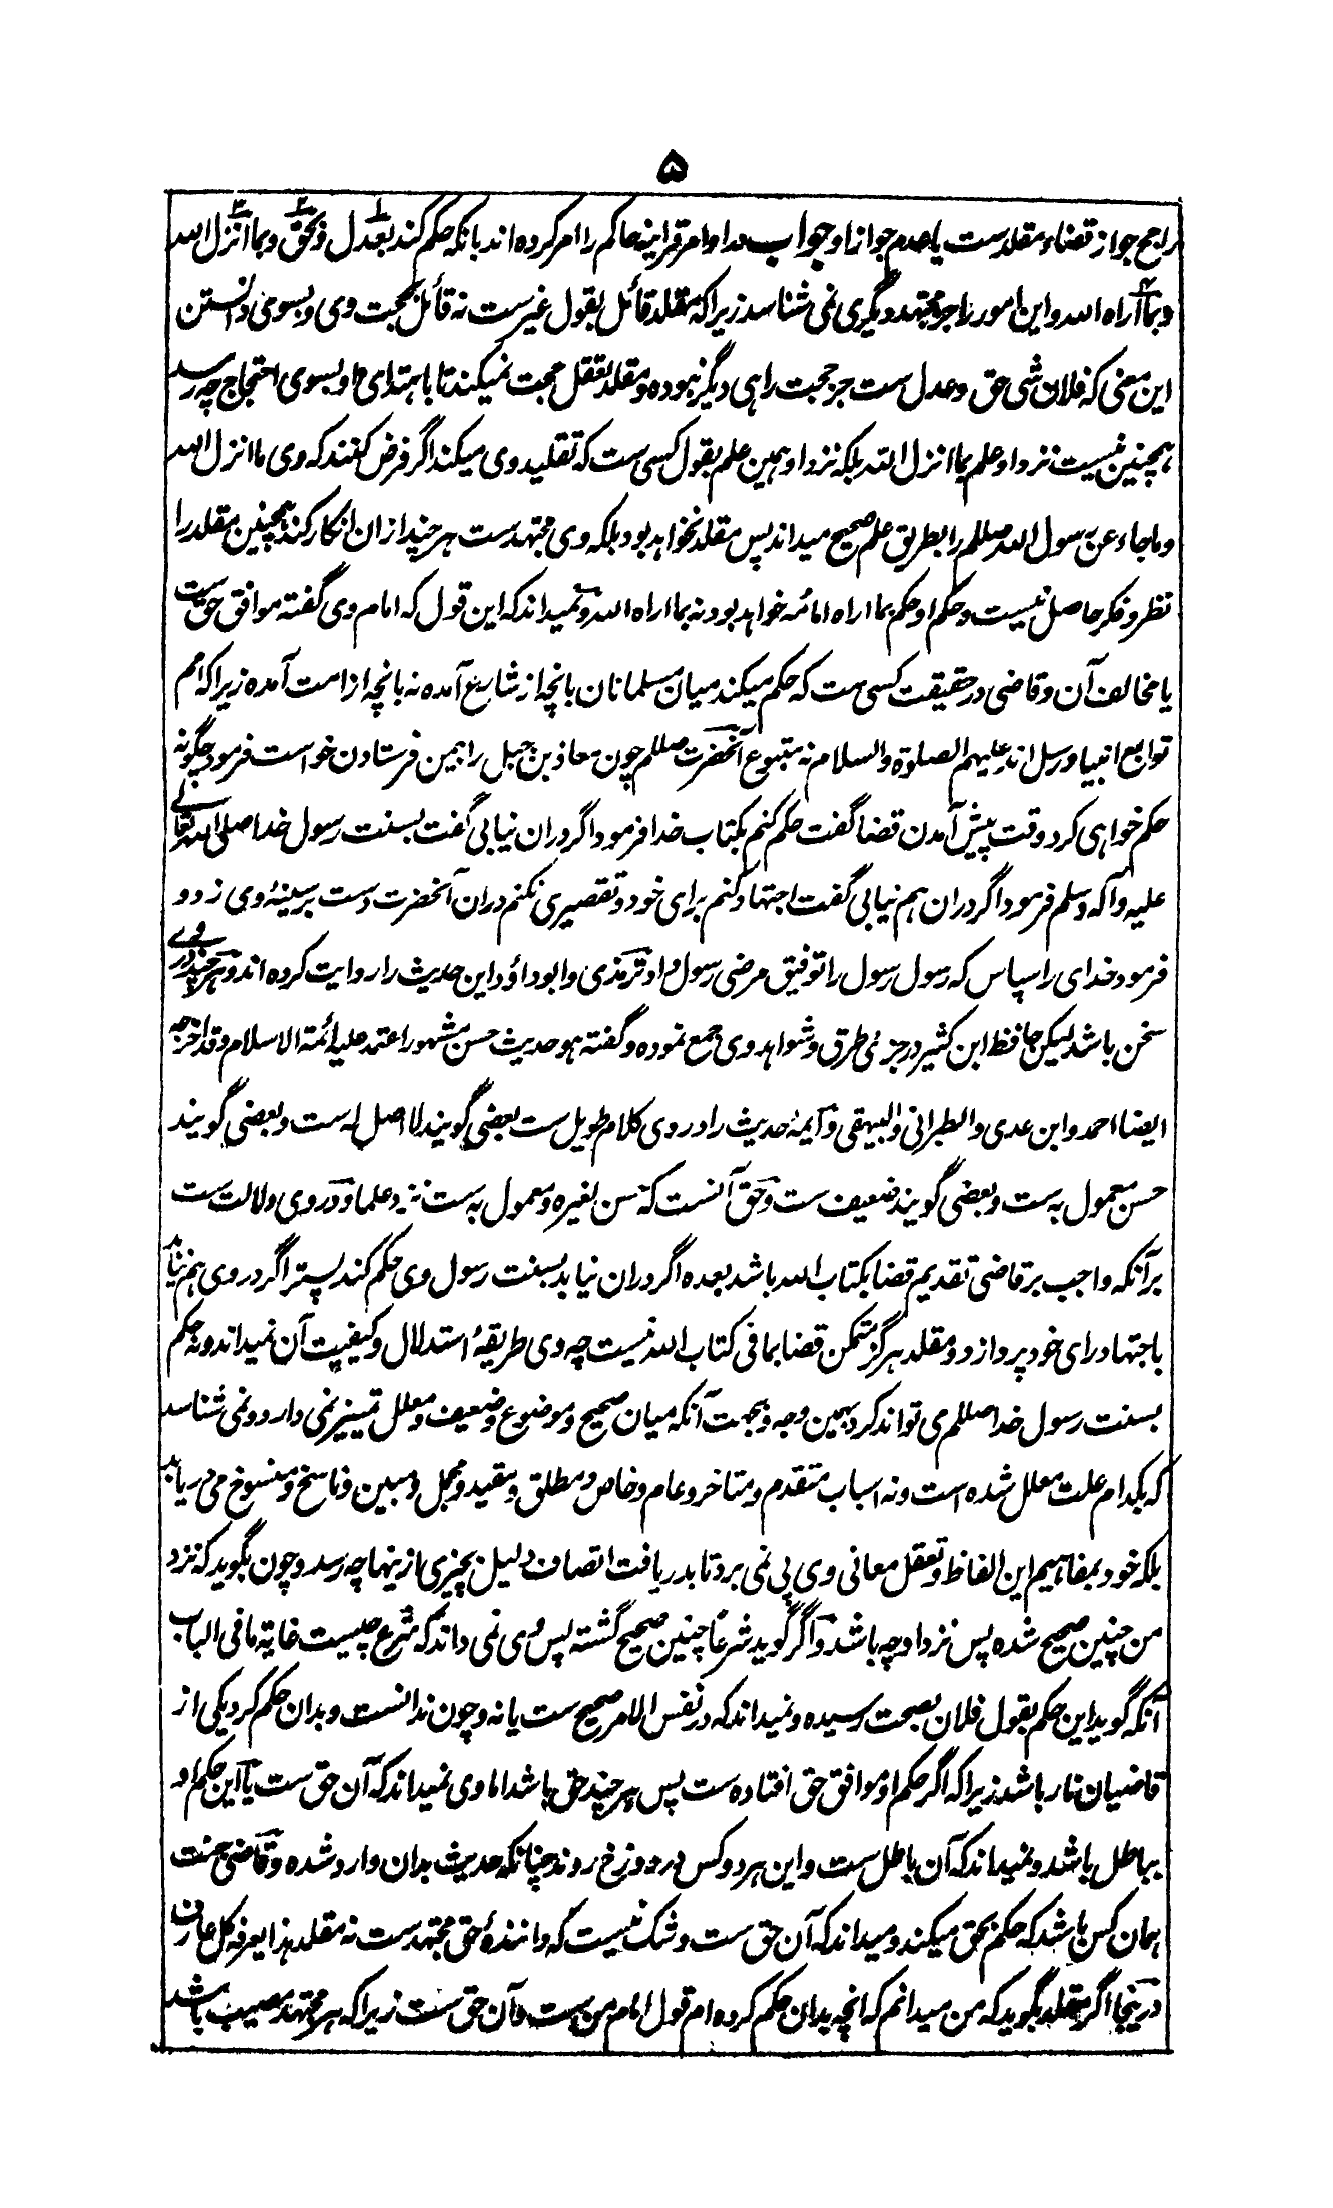 ۵
راجح جواز قضاء مقلد ست یا عدم جواز او جواب اوامر قرآنیه حاکم را امر کرده اند بانکه حکم کند بعدل و بحق و بما انزل الله
و بما اراه الله و این امور را جز مجتهد دیگری نمی شناسد زیرا که مقلد قائل بقول غیر ست نه قائل بحجت وی و بسوی دانستن
این معنی که فلان شی حق و عدل ست جز حجت راهی دیگر نبوده و مقلد تعقل حجت نمیکند تا باهتدای او بسوی احتجاج چه رسد
همچنین نیست نزد او علم بما انزل الله بلکه نزد او همین علم بقول کسی ست که تقلید وی میکند اگر فرض کنند که وی ما انزل الله
و ما جاء عن رسول الله صللم را بطریق علم صحیح میداند پس مقلد نخواهد بود بلکه وی مجتهد ست هر چند از ان انکار کند همچنین مقلد را
نظر و فکر حاصل نیست و حکم او حکم بما اراه امامه خواهد بود نه بما اراه الله و نمیداند که این قول که امام وی گفته موافق حق ست
یا مخالف آن و قاضی در حقیقت کسی ست که حکم میکند میان مسلمانان بانچه از شارع آمده نه بانچه از امت آمده زیرا که امم
توابع انبیا و رسل اند علیهم الصلوة والسلام نه متبوع آنحضرت صللم چون معاذ بن جبل را بیمن فرستادن خواست فرمود چگونه
حکم خواهی کرد وقت پیش آمدن قضا گفت حکم کنم بکتاب خدا فرمود اگر دران نیابی گفت بسنت رسول خدا صلی الله تعالے
علیه و آله وسلم فرمود اگر دران هم نیابی گفت اجتهاد کنم برای خود و تقصیری نکنم دران آنحضرت دست بر سینۀ وی زد و
فرمود خدای را سپاس که رسول رسول را توفیق مرضی رسول داد ترمذی و ابو داؤد این حدیث را روایت کرده اند و هر چند در وے
سخن باشد لیکن حافظ ابن کثیر در جزئی طرق و شواهد وی جمع نموده و گفته هو حدیث حسن مشهور اعتمد علیه ائمة الاسلام و قد اخرجه
ایضا احمد و ابن عدی و الطبرانی و البیهقی و آیمۀ حدیث را در وی کلام طویل ست بعضی گویند لا اصل له ست و بعضی گویند
حسن معمول به ست و بعضی گویند ضعیف ست و حق آنست که حسن لغیره و معمول به ست نزد علما و در وی دلالت ست
بر آنکه واجب بر قاضی تقدیم قضا بکتاب الله باشد بعده اگر دران نیابد بسنت رسول وی حکم کند پستر اگر در وی هم نیابد
باجتهاد رای خود پردازد و مقلد هرگز متمکن قضا بما فی کتاب الله نیست چه وی طریقۀ استدلال و کیفیت آن نمیداند و نه حکم
بسنت رسول خدا صللم می تواند کرد بهمین وجه و بجهت آنکه میان صحیح و موضوع و ضعیف و معلل تمییز نمی دارد و نمی شناسد
که بکدام علت معلل شده است و نه اسباب متقدم و متاخر و عام و خاص و مطلق و مقید و مجمل و مبین و ناسخ و منسوخ می دریابد
بلکه خود بمفاهیم این الفاظ و تعقل معانی وی پی نمی برد تا بدریافت اتصاف دلیل بچیزی ازینها چه رسد و چون بگوید که نزد
من چنین صحیح شده پس نزد او چه باشد و اگر گوید شرعاً چنین صحیح گشته پس وی نمی داند که شرع چیست غایة ما فی الباب
آنکه گوید این حکم بقول فلان بصحت رسیده و نمیداند که در نفس الامر صحیح ست یا نه و چون ندانست و بدان حکم کرد یکی از
قاضیان نار باشد زیرا که اگر حکم او موافق حق افتاده ست پس هر چند حق باشد اما وی نمیداند که آن حق ست یا این حکم او
بباطل باشد و نمیداند که آن باطل ست و این هر دو کس در دوزخ روند چنانکه حدیث بدان وارد شده و قاضی جنت
همان کس باشد که حکم بحق میکند و میداند که آن حق ست و شک نیست که دانندۀ حق مجتهد ست نه مقلد هذا یعرفه کل عارف
درینجا اگر مقلد بگوید که من میدانم که انچه بدان حکم کرده ام قول امام من ست و آن حق ست زیرا که هر مجتهد مصیب باشد